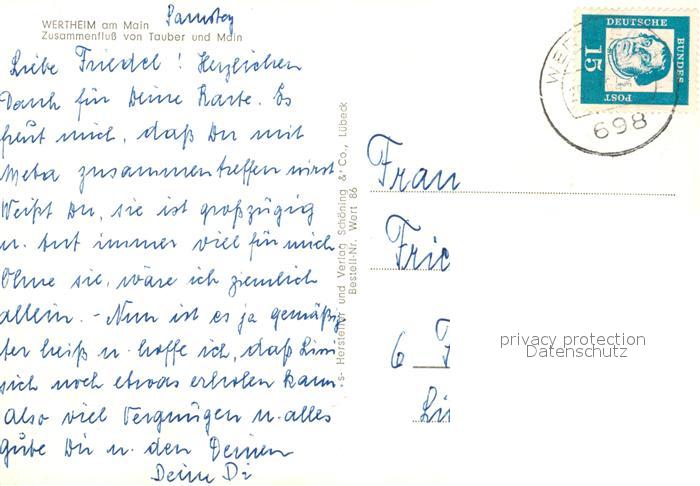 WERTHEIM am Main Samstag
Zusammenfluß von Tauber und Main
Liebe Friedel! Herzlichen
Dank für Deine Karte. Es
freut mich, daß Du mit
Meta zusammentreffen wirst.
Weißt Du, sie ist großzügig
u. tut immer viel für mich
Ohne sie, wäre ich ziemlich
allein. - Nun ist es ja gemäßig
ter heiß u. hoffe ich, daß Linni
sich noch etwas erholen kann.
Also viel Vergnügen u. alles
gute Dir u. den Deinen
Deine Di
Hersteller und Verlag Schöning & Co., Lübeck
Bestell-Nr. Wert 86
DEUTSCHE
BUNDES
POST
15
WER
698
Frau
Fric
6
Li
privacy protection
Datenschutz